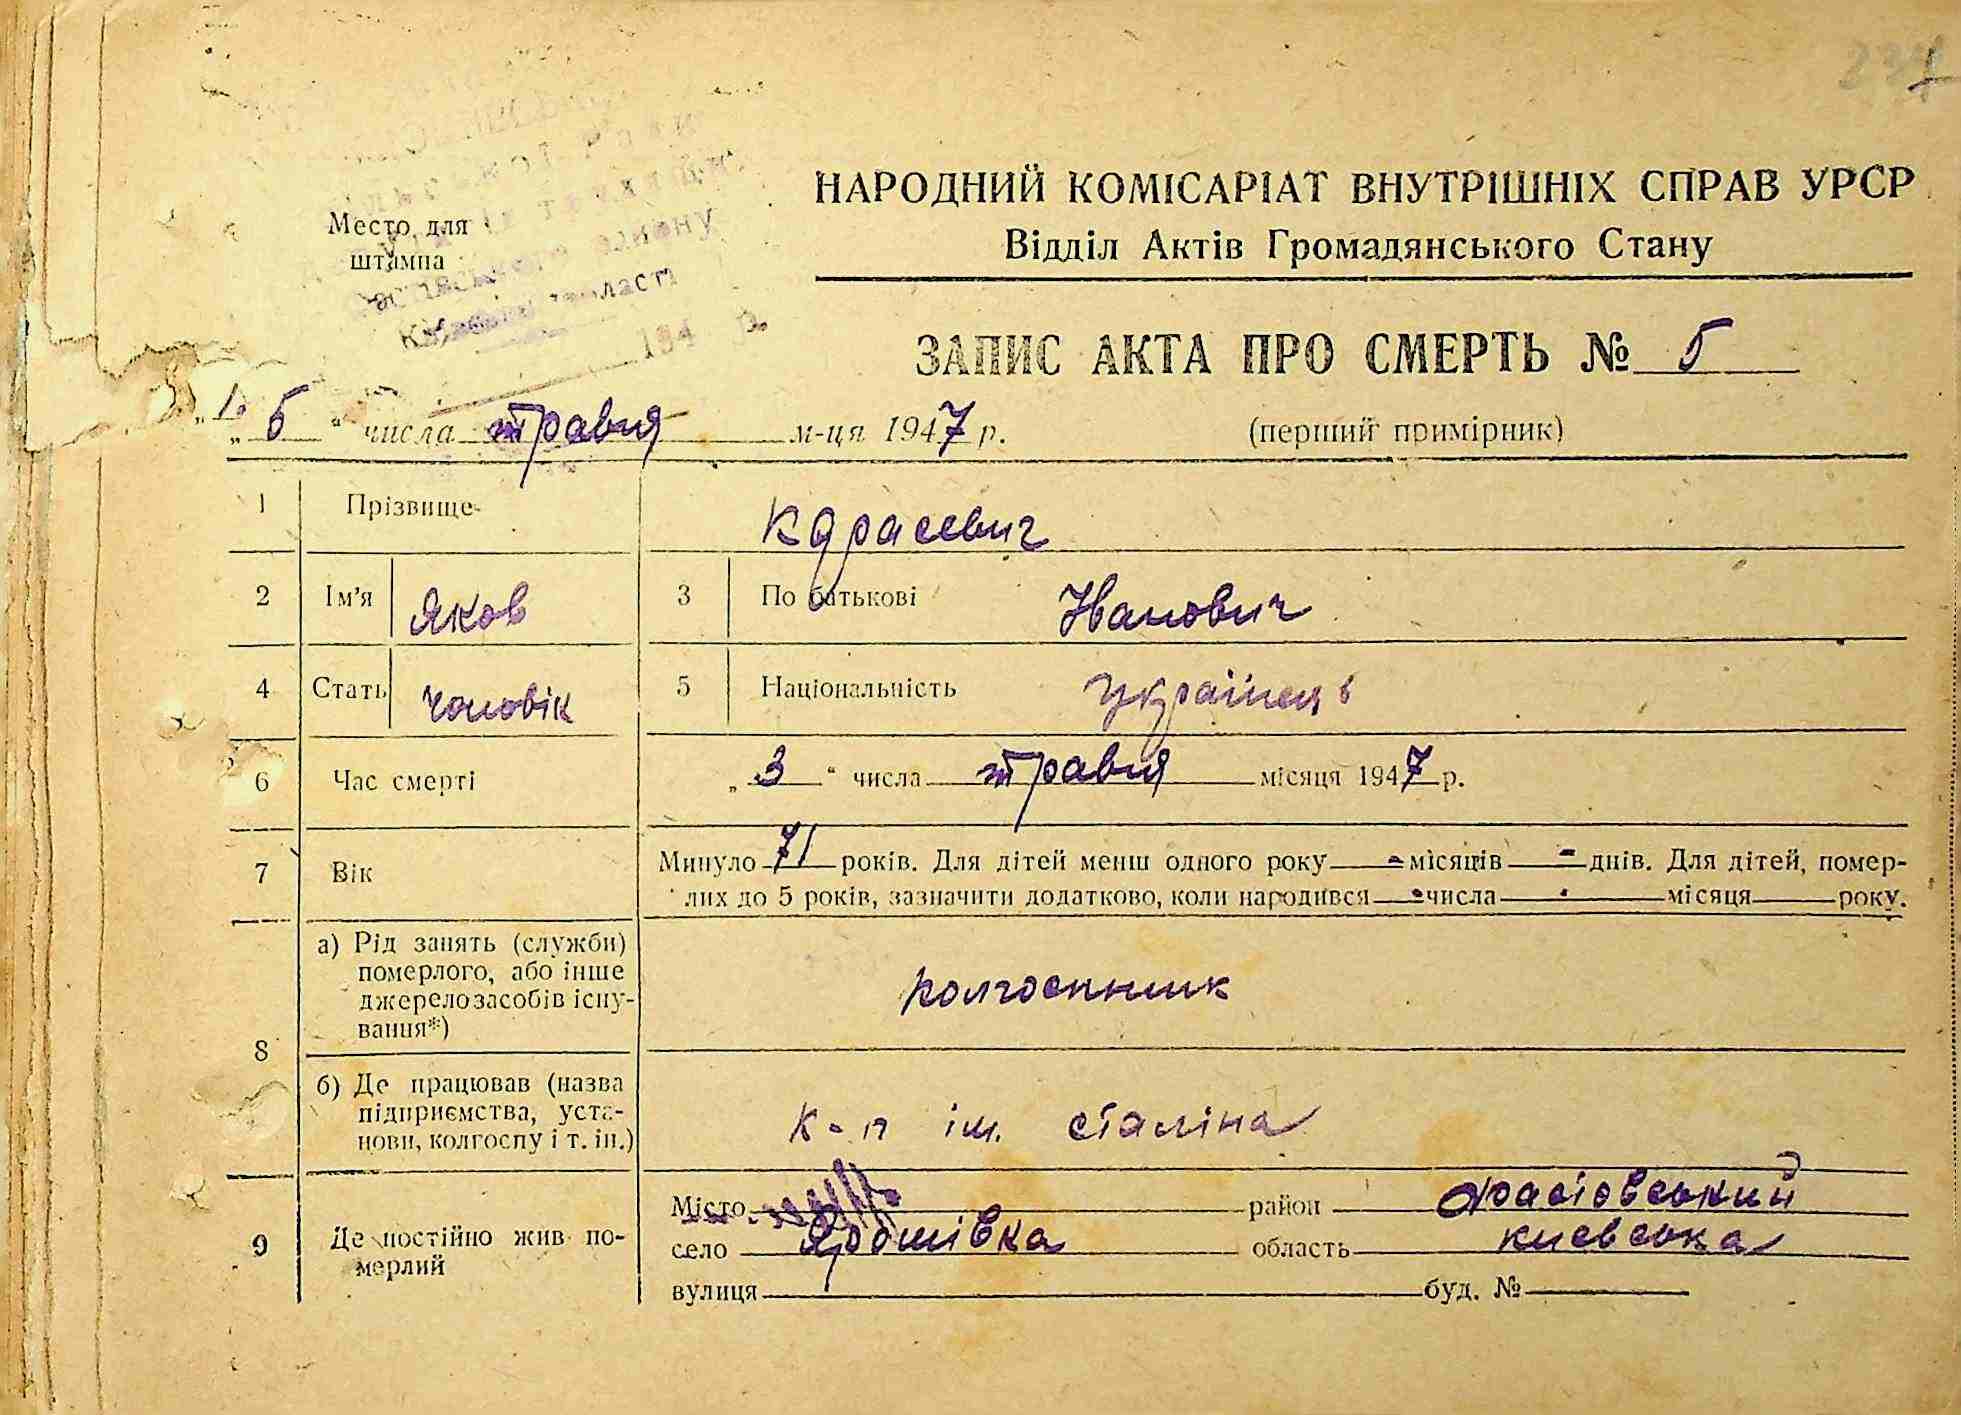 Место для
штампа
району
Київської області
194 р.
НАРОДНИЙ КОМІСАРІАТ ВНУТРІШНІХ СПРАВ УРСР
Відділ Актів Громадянського Стану
ЗАПИС АКТА ПРО СМЕРТЬ № 5
„ 5 “ числа травня м-ця 1947 р. (перший примірник)
1 Прізвище Карасевич
2 Ім'я Яков 3 По батькові Иванович
4 Стать чоловік 5 Національність українець
6 Час смерті „ 3 “ числа травня місяця 1947 р.
7 Вік Минуло 71 років. Для дітей менш одного року - місяців - днів. Для дітей, помер-
лих до 5 років, зазначити додатково, коли народився - числа - місяця року.
8 а) Рід занять (служби)
померлого, або інше
джерело засобів існу-
вання*)
колгоспник
б) Де працював (назва
підприємства, уста-
нови, колгоспу і т. ін.)
к-п ім. сталіна
9 Де постійно жив по-
мерлий
Місто район Фастовський
село Ярошівка область киевська
вулиця буд. №